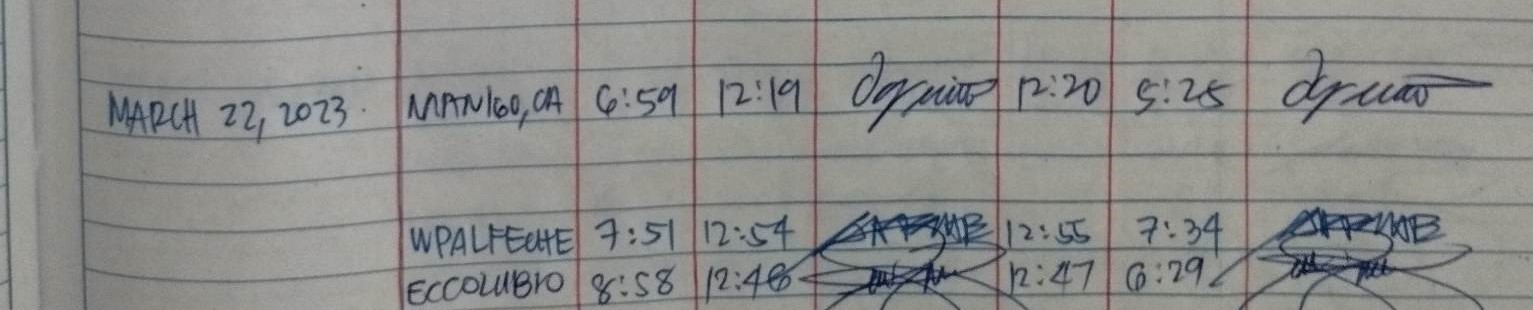 MARCH 22, 2023. MANIGO, CA 6:59 12:19 12:20 5:25
WPALFECHE 7:51 12:54 12:55 7:34
ECCOLUBIO 8:58 12:46 12:47 6:29